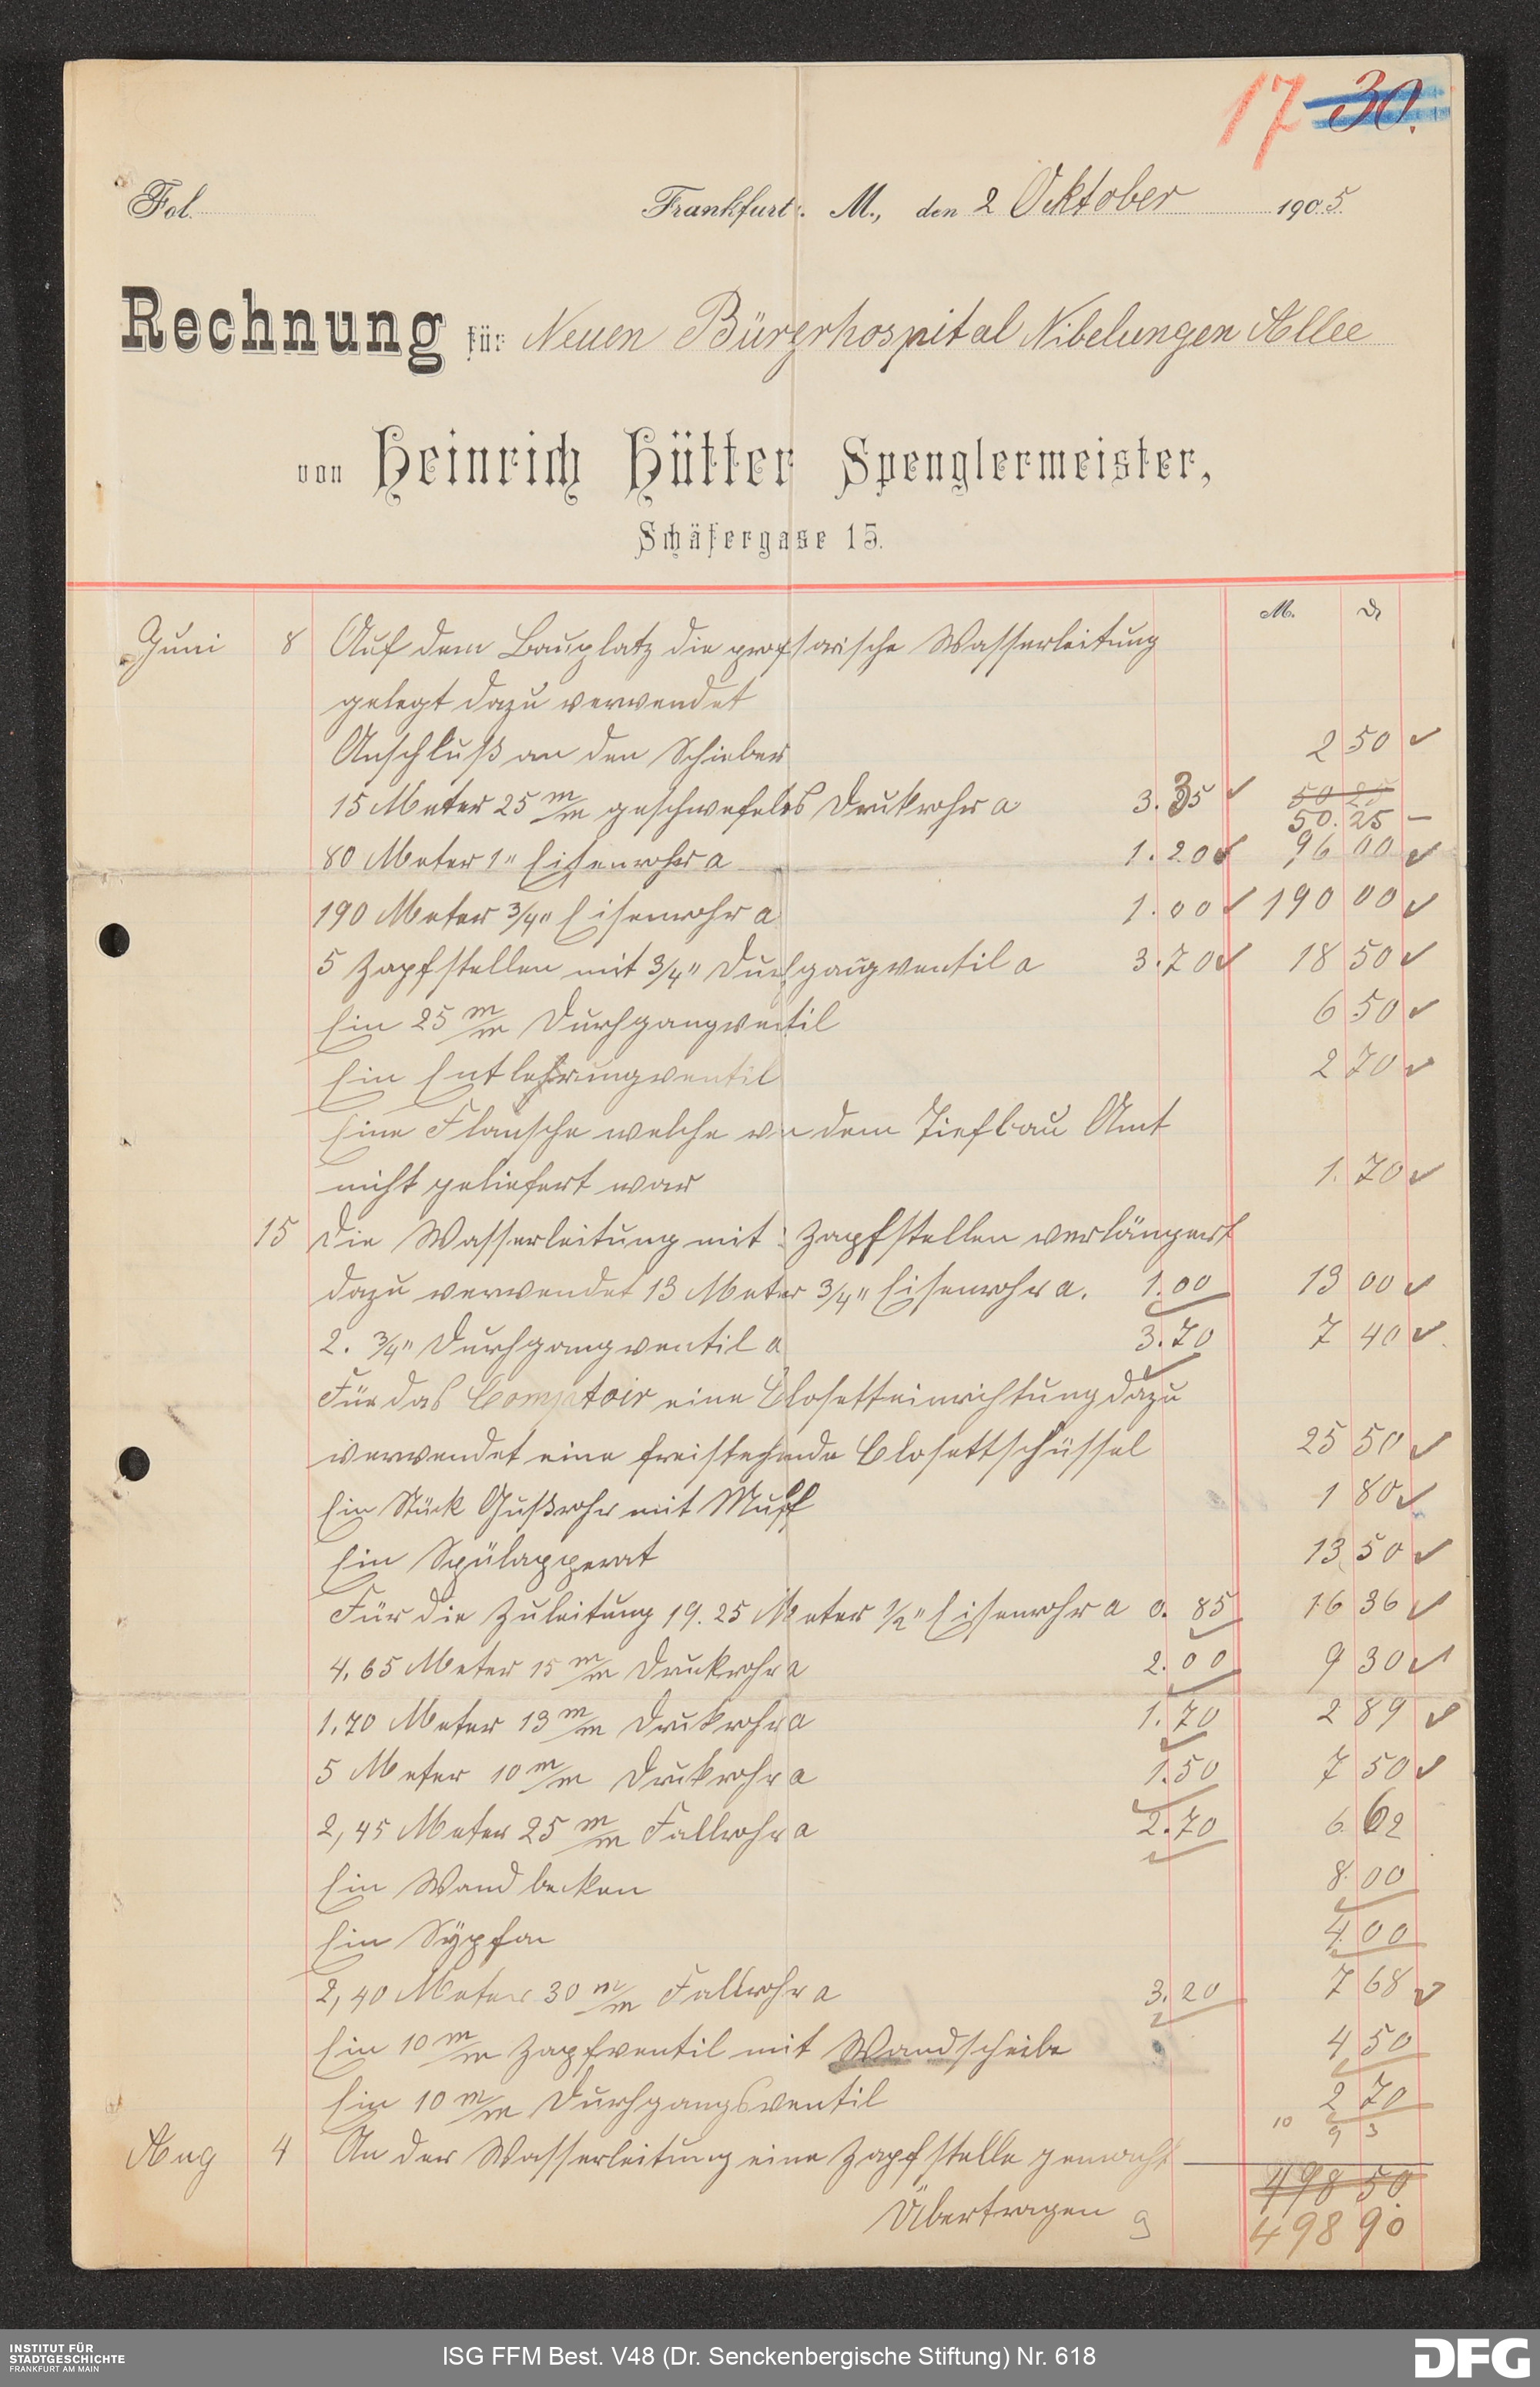 17 30.
Fol.
Frankfurt a. M., den 2 Oktober 1905.
Rechnung für Neuen Bürgerhospital Nibelungen Allee
von Heinrich Hütter Spenglermeister,
Schäfergasse 15.
M. ₰
Juni 8 Auf dem Bauplatz die Wasserleitung
gelegt dazu verwendet
Anschluß an den Schieber 2 50
15 Meter 25 m/m geschwefeltes Drukrohr a 3.35 50 25
50.25 –
80 Meter 1" Eisenrohr a 1.20 96 00
190 Meter 3/4" Eisenrohr a 1.00 190 00
5 Zapfstellen mit 3/4" Durchgangventil a 3.70 18 50
Ein 25 m/m Durchgangventil 6 50
Ein Entlehrungventil 2 70
Eine Flansche welche von dem Tiefbau Amt
nicht geliefert war 1.70
15 Die Wasserleitung mit Zapfstellen verlängert
dazu verwendet 13 Meter 3/4" Eisenrohr a. 1.00 13 00
2. 3/4" Durchgangventil a 3.70 7 40
Für das Comptoir eine Closetteinrichtung dazu
verwendet eine freistehende Closettschüssel 25 50
Ein Stück Gußrohr mit Muff 1 80
Ein Spülapperat 13 50
Für die Zuleitung 19.25 Meter 1/2" Eisenrohr a 0.85 16 36
4,65 Meter 15 m/m Drukrohr a 2.00 9 30
1,70 Meter 13 m/m Drukrohr a 1.70 2 89
5 Meter 10 m/m Drukrohr a 1.50 7 50
2,45 Meter 25 m/m Fallrohr a 2.70 6.62
Ein Wandbecken 8.00
Ein Sÿpfon 4.00
2,40 Meter 30 m/m Fallrohr a 3.20 7 68
Ein 10 m/m Zapfventil mit Wandscheibe 4 50
Ein 10 m/m Durchgangsventil 2 70
10 9 3
Aug 4 An der Wasserleitung eine Zapfstelle gemacht
498 50
Übertragen 498 90
INSTITUT FÜR
STADTGESCHICHTE
FRANKFURT AM MAIN
ISG FFM Best. V48 (Dr. Senckenbergische Stiftung) Nr. 618
DFG